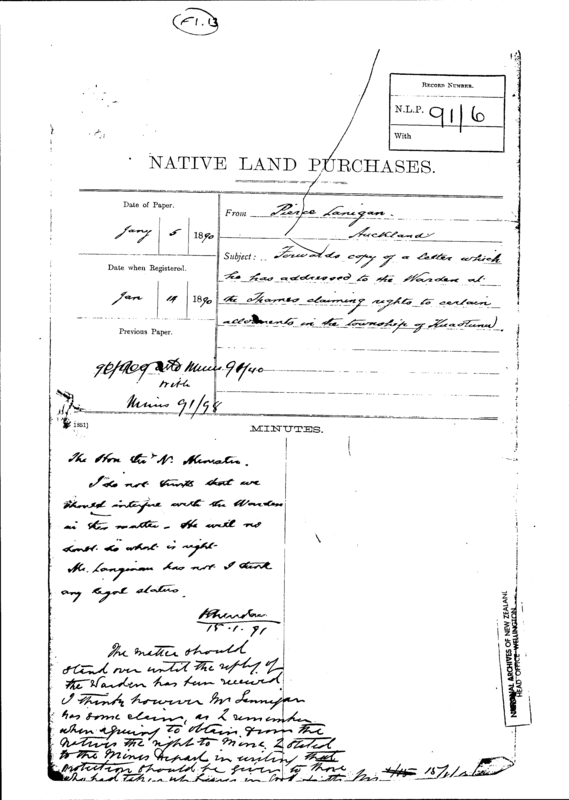 F1.13
RECORD NUMBER.
N.L.P. 91/6
With
NATIVE LAND PURCHASES.
Date of Paper.
Jany 5 1890
Date when Registered.
Jan 14 1890
Previous Paper.
with
Mines 91/98
From Pierce Lanigan.
Auckland
Subject: Forwards copy of a letter which
he has addressed to the Warden at
the Thames claiming rights to certain
allotments in the township of Kuaotunu
1851]
MINUTES.
The Hon the N. Minister.
I do not think that we
should interfere with the Warden
in this matter - He will no
doubt do what is right
Mr. has not I think
any legal status.
15.1.91
The matter should
stand over until the reply of
the Warden has been received
I think however Mr Lannigan
has some claim, as I remember
when agreeing to obtain from the
natives the right to mine, I stated
to the Mines Depart in writing that
protection should be given to those
who had taken in the
NATIONAL ARCHIVES OF NEW ZEALAND
HEAD OFFICE WELLINGTON